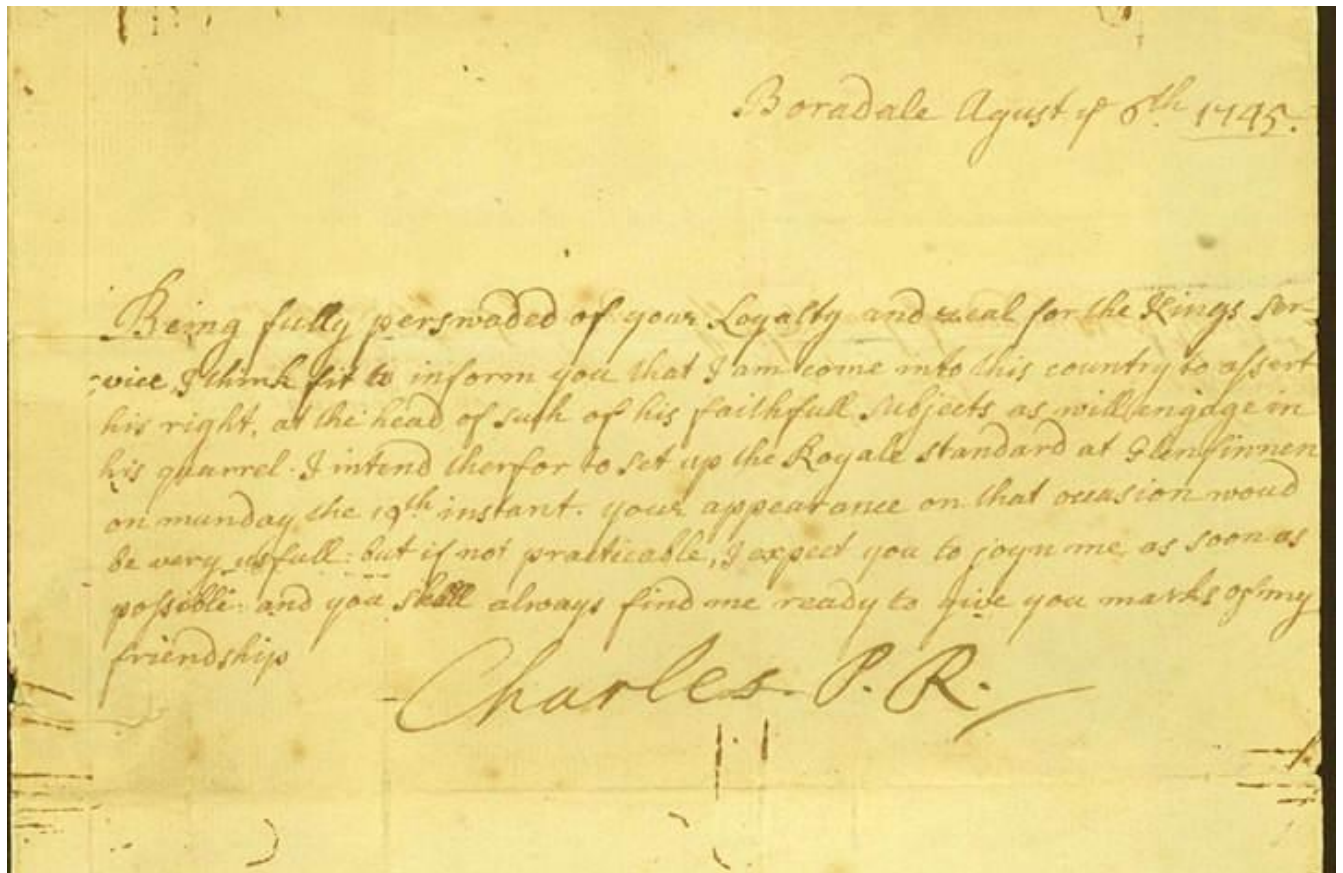 Boradale Agust ye 6th 1745.
Being fully perswaded of your Loyalty and zeal for the Kings Ser-
vice I think fit to inform you that I am come into this country to assert
his right, at the head of such of his faithfull subjects as will engage in
his quarrel. I intend therfor to set up the Royale standard at Glenfinnen
on munday the 19th instant. your appearance on that occasion woud
be very usfull. but if not practicable, I expect you to joyn me as soon as
possible. and you shall always find me ready to give you marks of my
friendship
Charles. P. R.